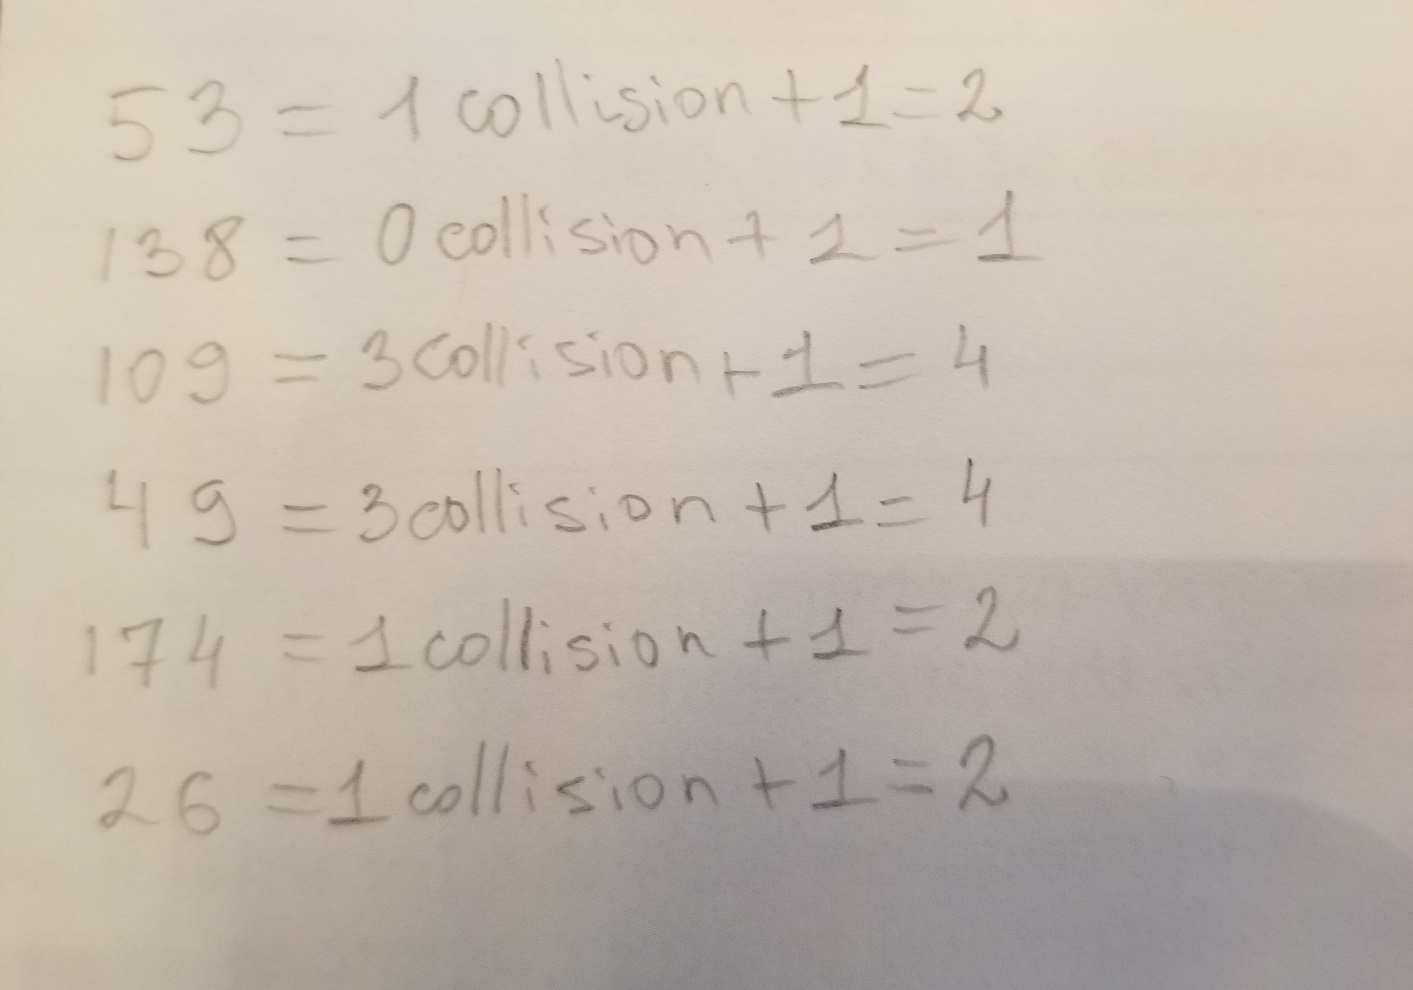 53 = 1 collision + 1 = 2
138 = 0 collision + 1 = 1
109 = 3 collision + 1 = 4
49 = 3 collision + 1 = 4
174 = 1 collision + 1 = 2
26 = 1 collision + 1 = 2